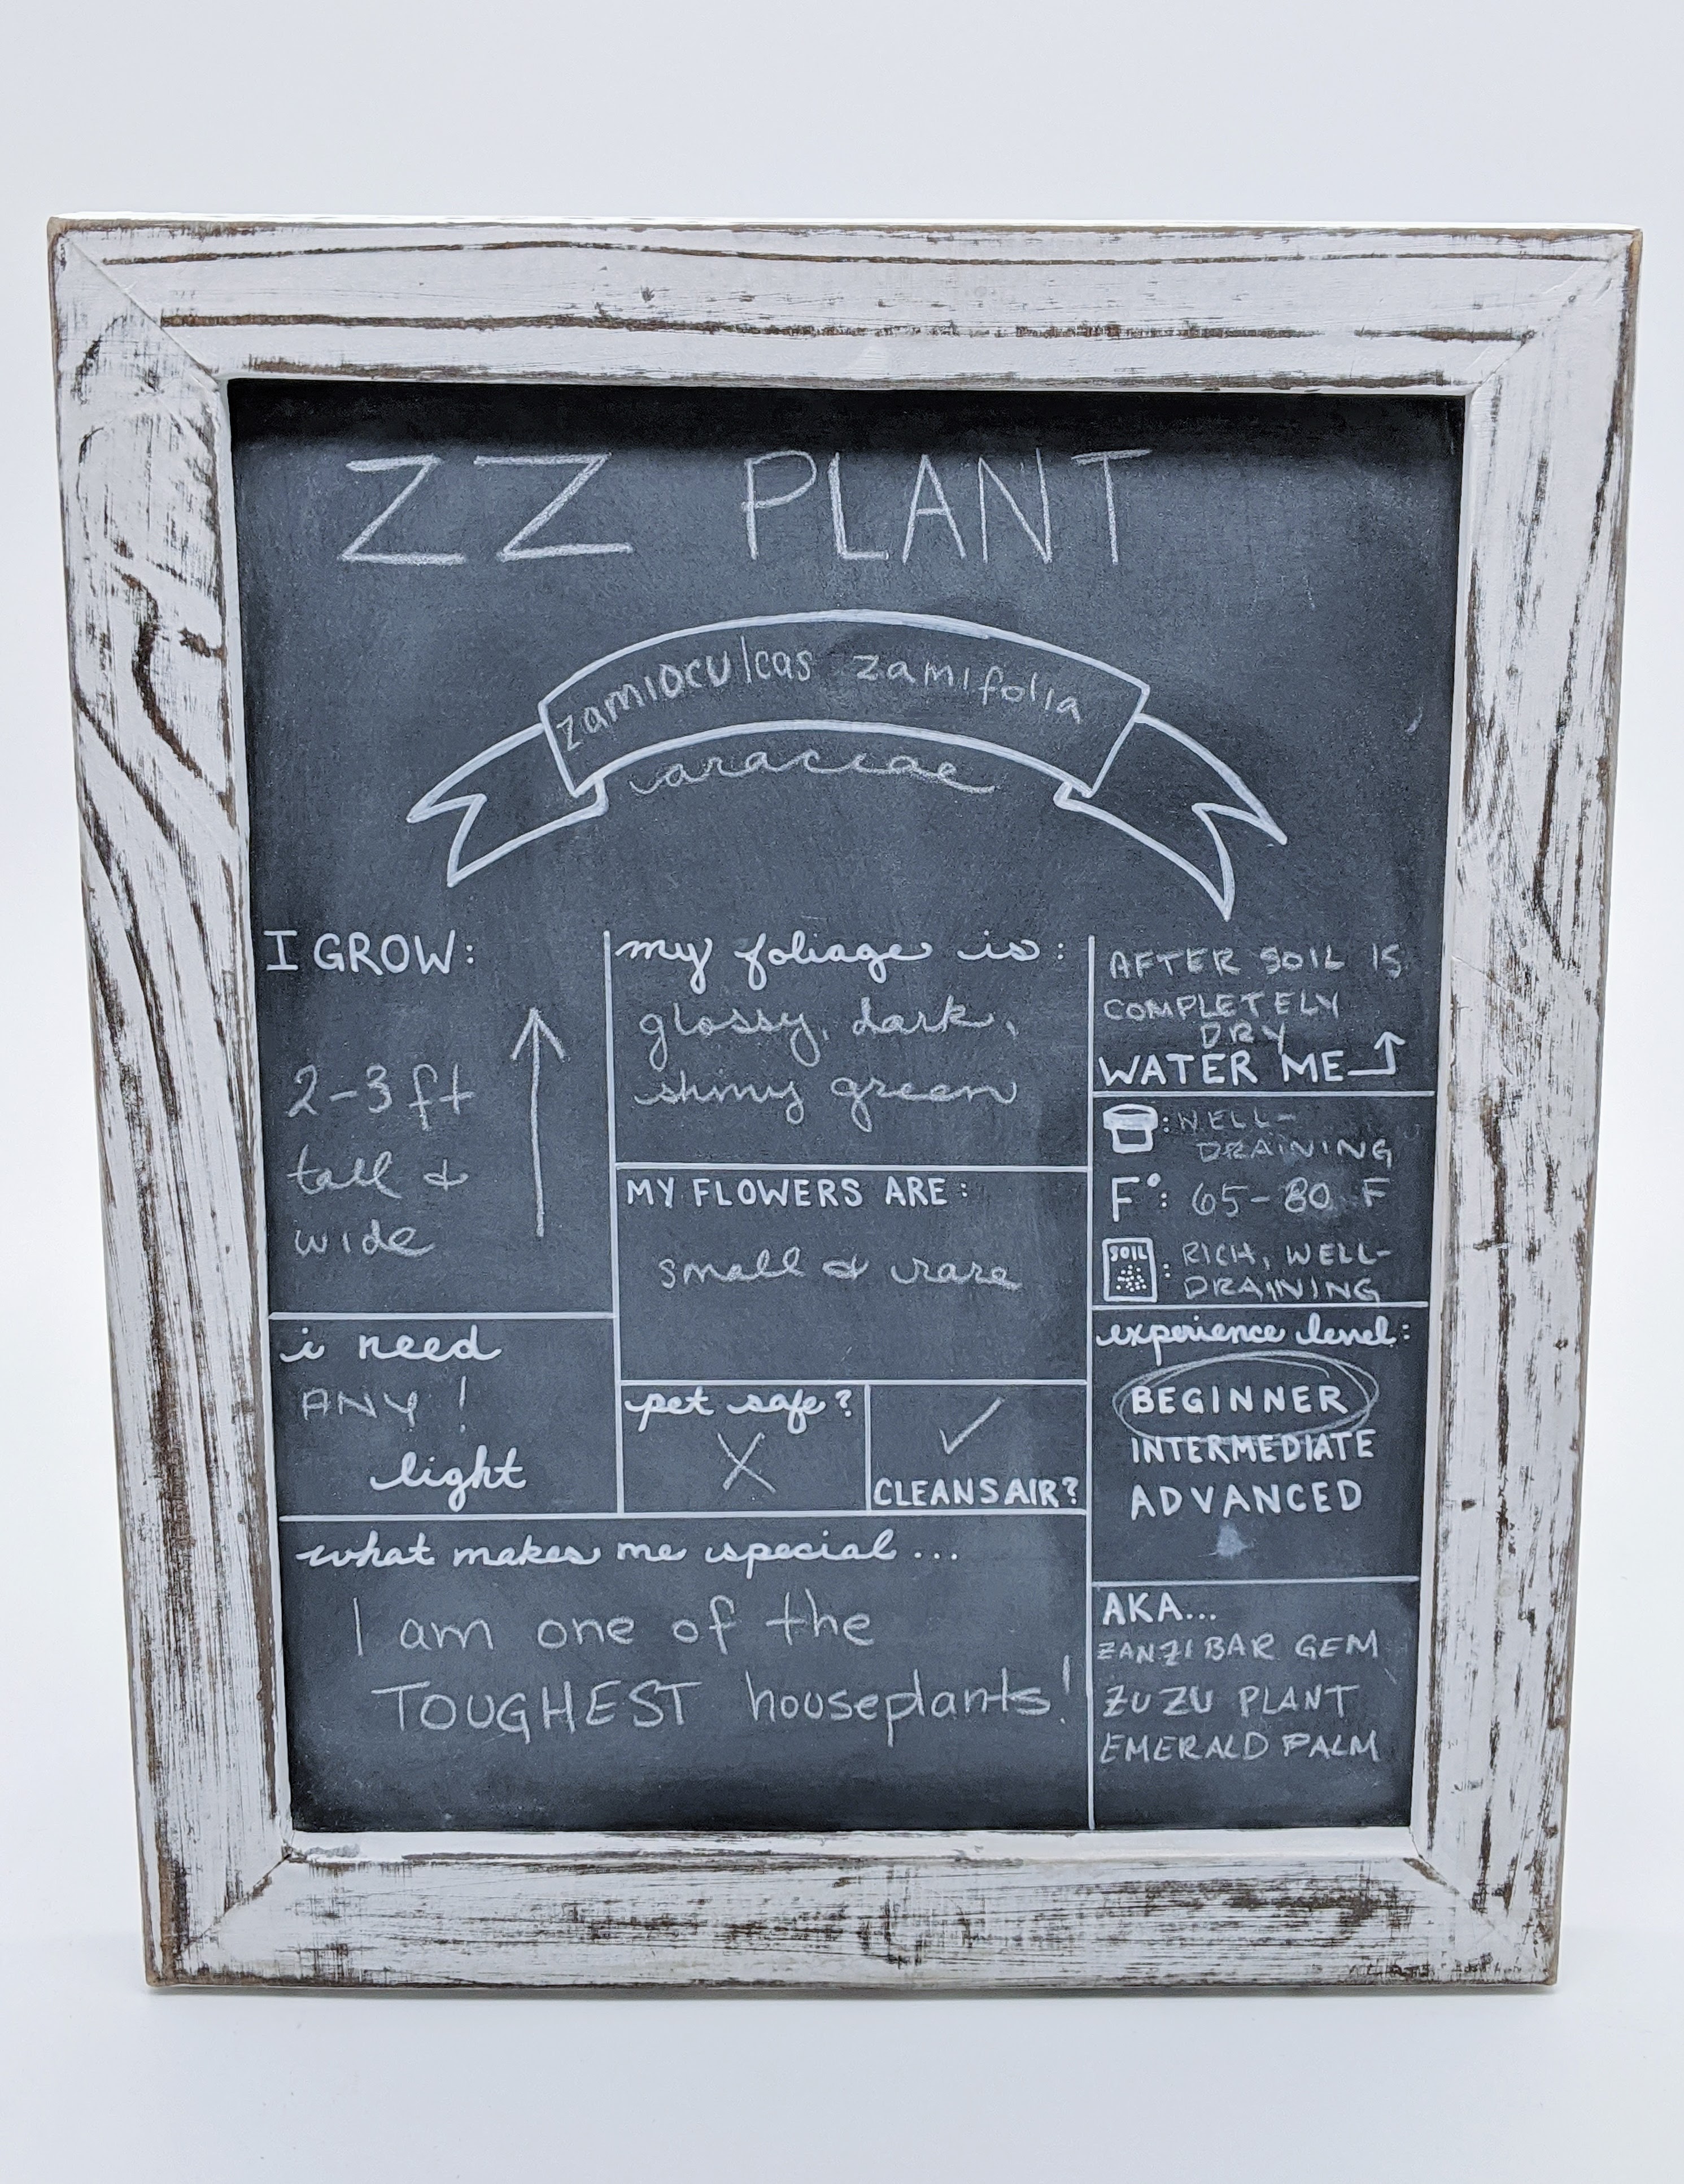 ZZ PLANT
zamioculcas zamifolia
araceae
I GROW:
2-3 ft
tall &
wide
i need
ANY!
light
my foliage is:
glossy, dark,
shiny green
MY FLOWERS ARE:
small & rare
pet safe?
X
✓
CLEANS AIR?
what makes me special...
I am one of the
TOUGHEST houseplants!
AFTER SOIL IS
COMPLETELY
DRY
WATER ME
: WELL-
DRAINING
F°: 65-80 F
SOIL : RICH, WELL-
DRAINING
experience level:
BEGINNER
INTERMEDIATE
ADVANCED
AKA...
ZANZIBAR GEM
ZUZU PLANT
EMERALD PALM